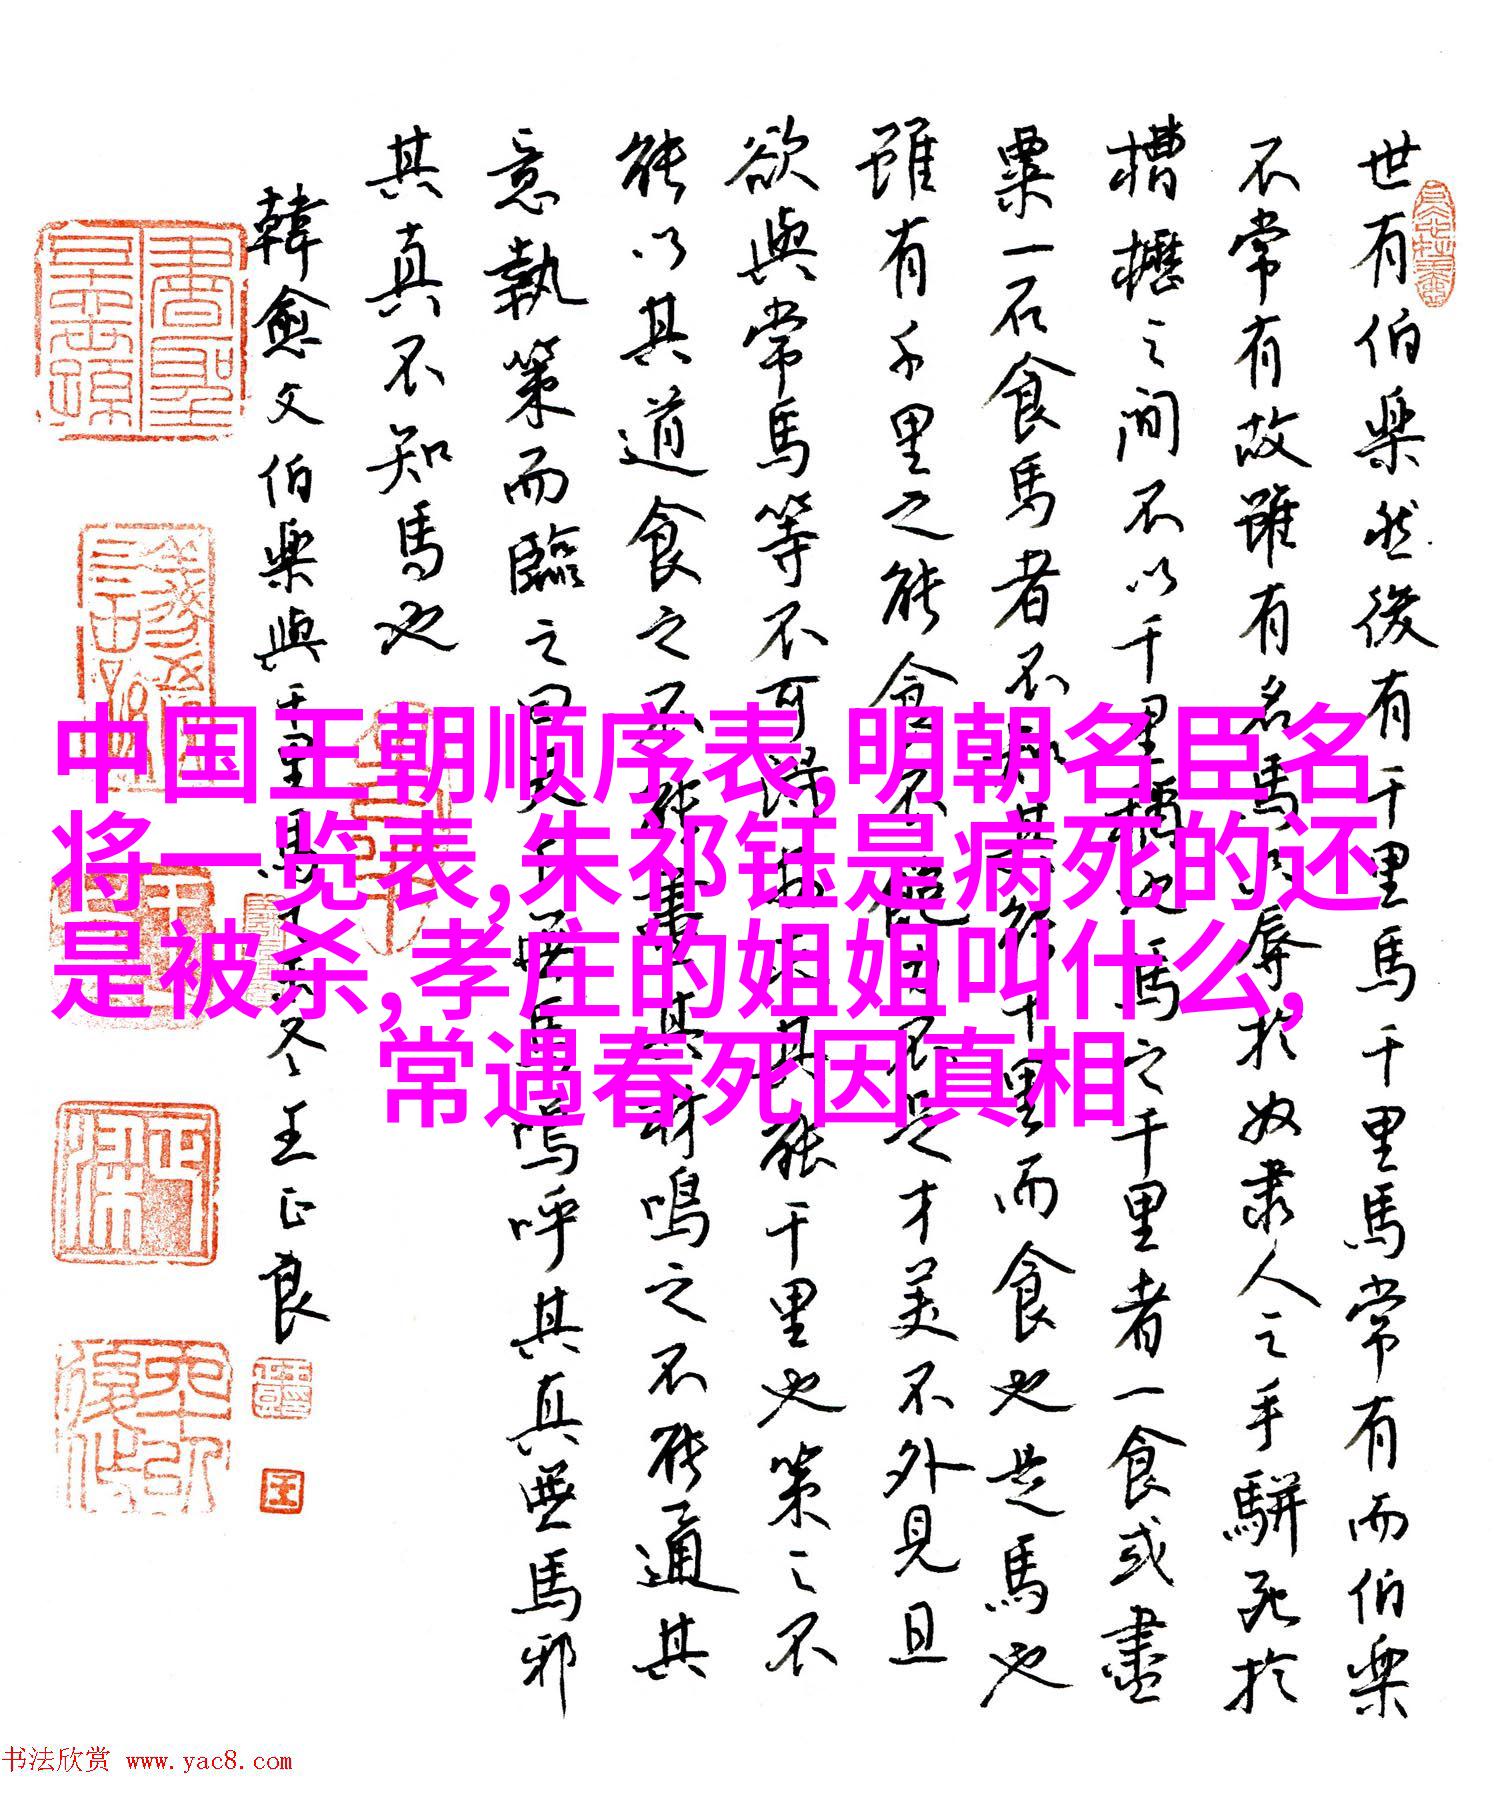 世有伯樂然後有千里馬千里馬常有而伯樂
不常有故雖有名馬辱於奴隶人之手駢死於
槽櫪之间不以千里稱也馬之千里者一食或盡
粟一石食馬者不知其能千里而食也是馬也
雖有千里之能食不飽力不足才美不外見且
欲與常馬等不可得安求其能千里也策之不
能以其道食之不能盡其材鳴之不能通其
意執策而臨之曰天下無馬嗚呼其真無馬邪
其真不知馬也
韓愈文伯樂與千里馬冬王正良
中国王朝顺序表,明朝名臣名
将一览表,朱祁钰是病死的还
是被杀,孝庄的姐姐叫什么,
常遇春死因真相
书法欣赏 www.yac8.com